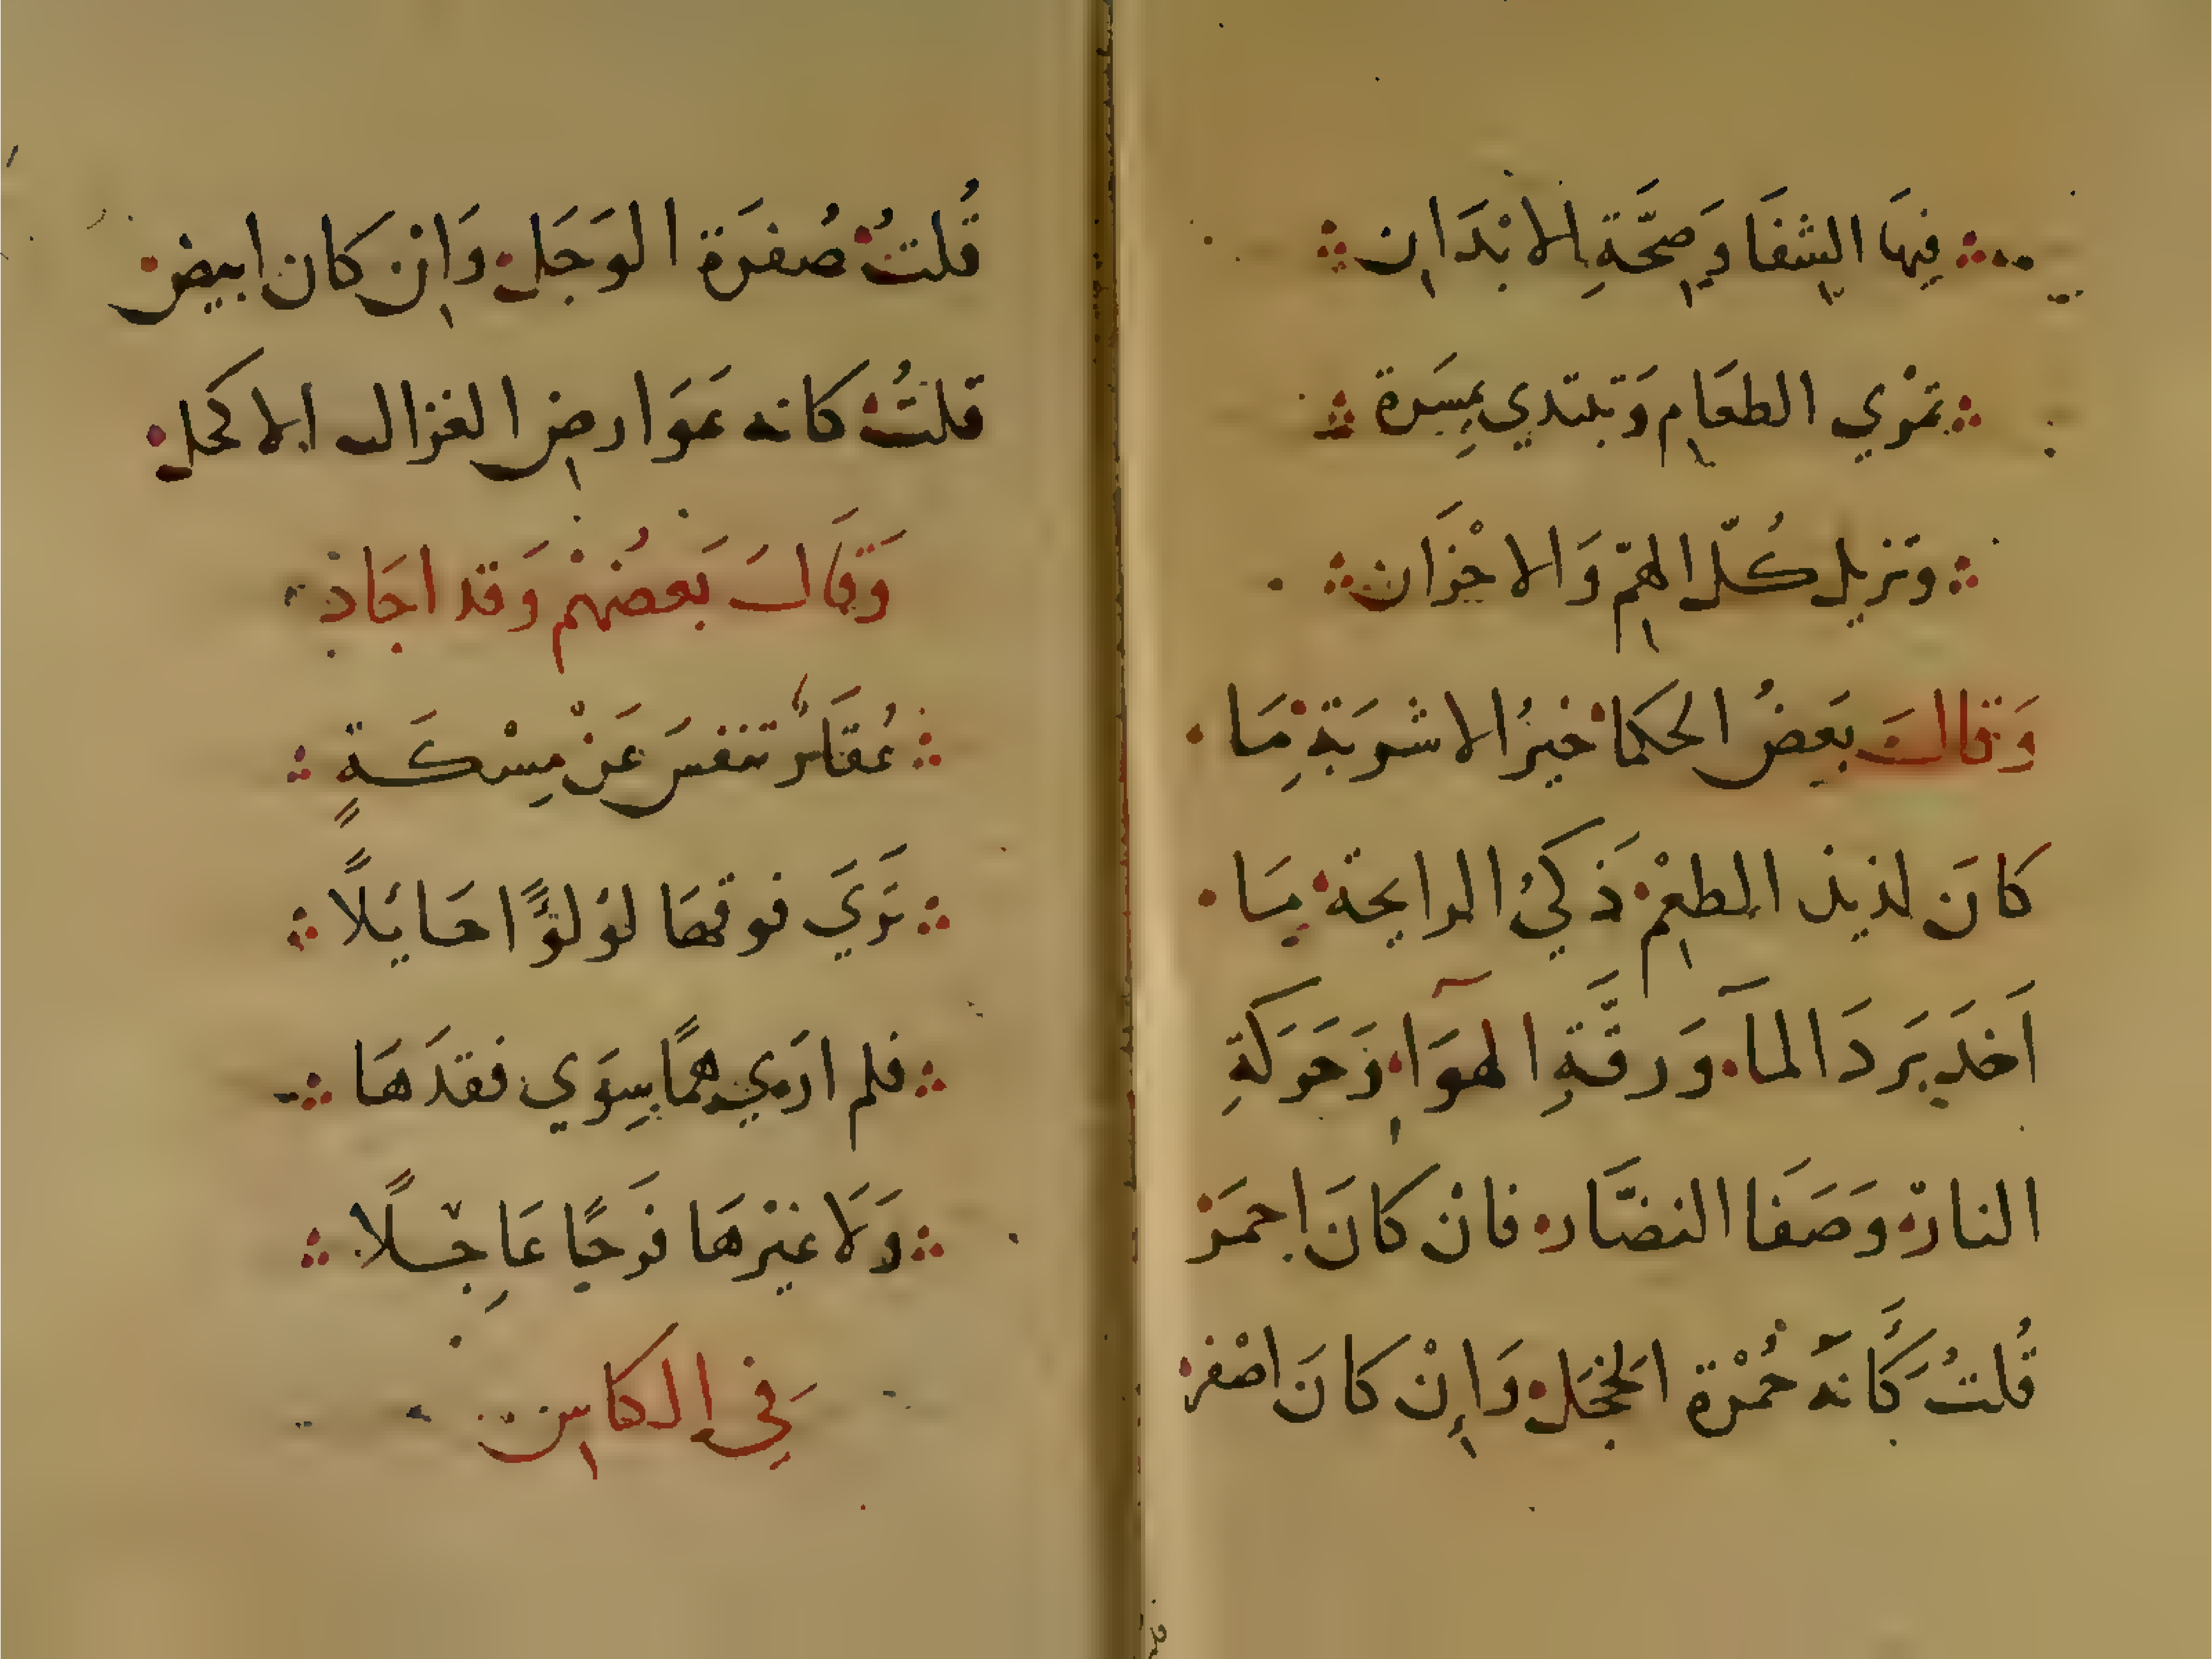 فِيهَا الشِفَا وَصِحَّةِ الابْدَانِ
تمْري الطعَامِ وَتبتدي بمِسَرة
وتزيل كُلّ الهمِّ وَالاحْزَان
وَقالَ بَعضُ الحكما خيرُ الاشربَة مَا
كانَ لذيذ المطعْمِ ذكيُ الرايحة مما
اَخدَ بَردَ المآ وَرقَّةِ الهوَآ وَحَركةِ
النار وَصَفَا النضَّار فانْ كانَ احمَر
قُلتُ كَأنهُ حُمْرة الخجَل وَإِنْ كانَ اصْفر
قُلتُ صُفرَة الوَجَل وَاِنْ كان ابيض
قلتُ كانه عَوَارضِ الغزال الاكحل
وَقَالَ بَعضُهُمْ وَقد اجَادَ
عُقَارٌ تنفسَ عَنْ مِسْكَةٍ
تَرَيَ فوقهَا لؤلؤًا حَائلاً
فلم ارَي همًا سِوَي فقدَهَا
وَلَا غيْرهَا فَرَحًا عَاجِلًا
وَفي الكاسِ
قلت